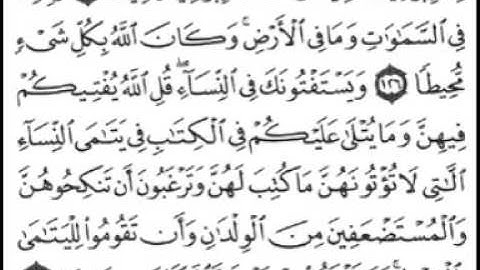 فِي ٱلسَّمَٰوَٰتِ وَمَا فِي ٱلْأَرْضِ ۚ وَكَانَ ٱللَّهُ بِكُلِّ شَىْءٍ
مُّحِيطًا ١٢٦ وَيَسْتَفْتُونَكَ فِي ٱلنِّسَآءِ ۖ قُلِ ٱللَّهُ يُفْتِيكُمْ
فِيهِنَّ وَمَا يُتْلَىٰ عَلَيْكُمْ فِي ٱلْكِتَٰبِ فِي يَتَٰمَى ٱلنِّسَآءِ
ٱلَّٰتِي لَا تُؤْتُونَهُنَّ مَا كُتِبَ لَهُنَّ وَتَرْغَبُونَ أَن تَنكِحُوهُنَّ
وَٱلْمُسْتَضْعَفِينَ مِنَ ٱلْوِلْدَٰنِ وَأَن تَقُومُوا۟ لِلْيَتَٰمَىٰ